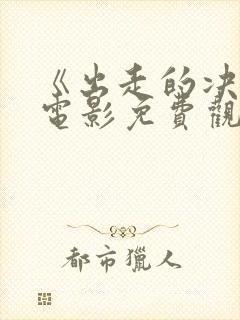 《出走的决
电影免費觀
都市獵人